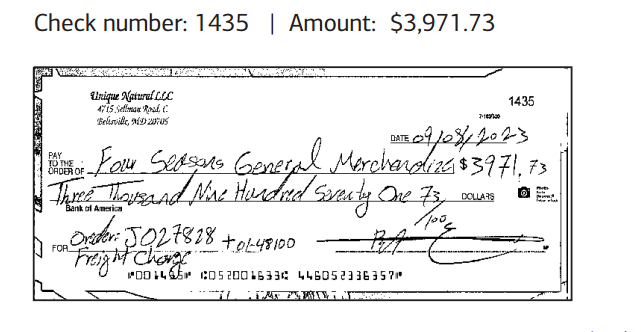 Check number: 1435 | Amount: $3,971.73
Unique Natural LLC
4715 Sellman Road, C.
Beltsville, MD 20705
1435
DATE 09/08/2023
PAY TO THE ORDER OF Four Seasons General Merchandize $3971.73
Three Thousand Nine Hundred Seventy One 73/100s DOLLARS
Bank of America
FOR Order: JO27828 + 01-48100
Freight Charge